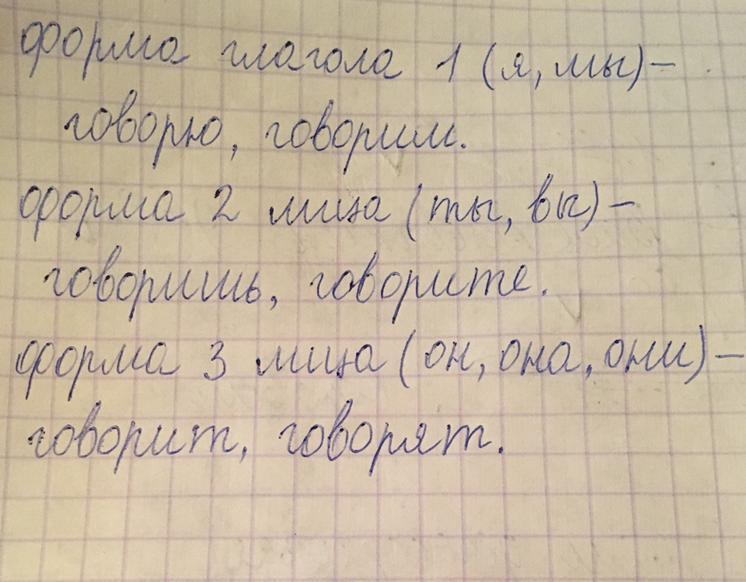 форма глагола 1 (я, мы)–
говорю, говорим.
форма 2 лица (ты, вы)–
говоришь, говорите.
форма 3 лица (он, она, они)–
говорит, говорят.